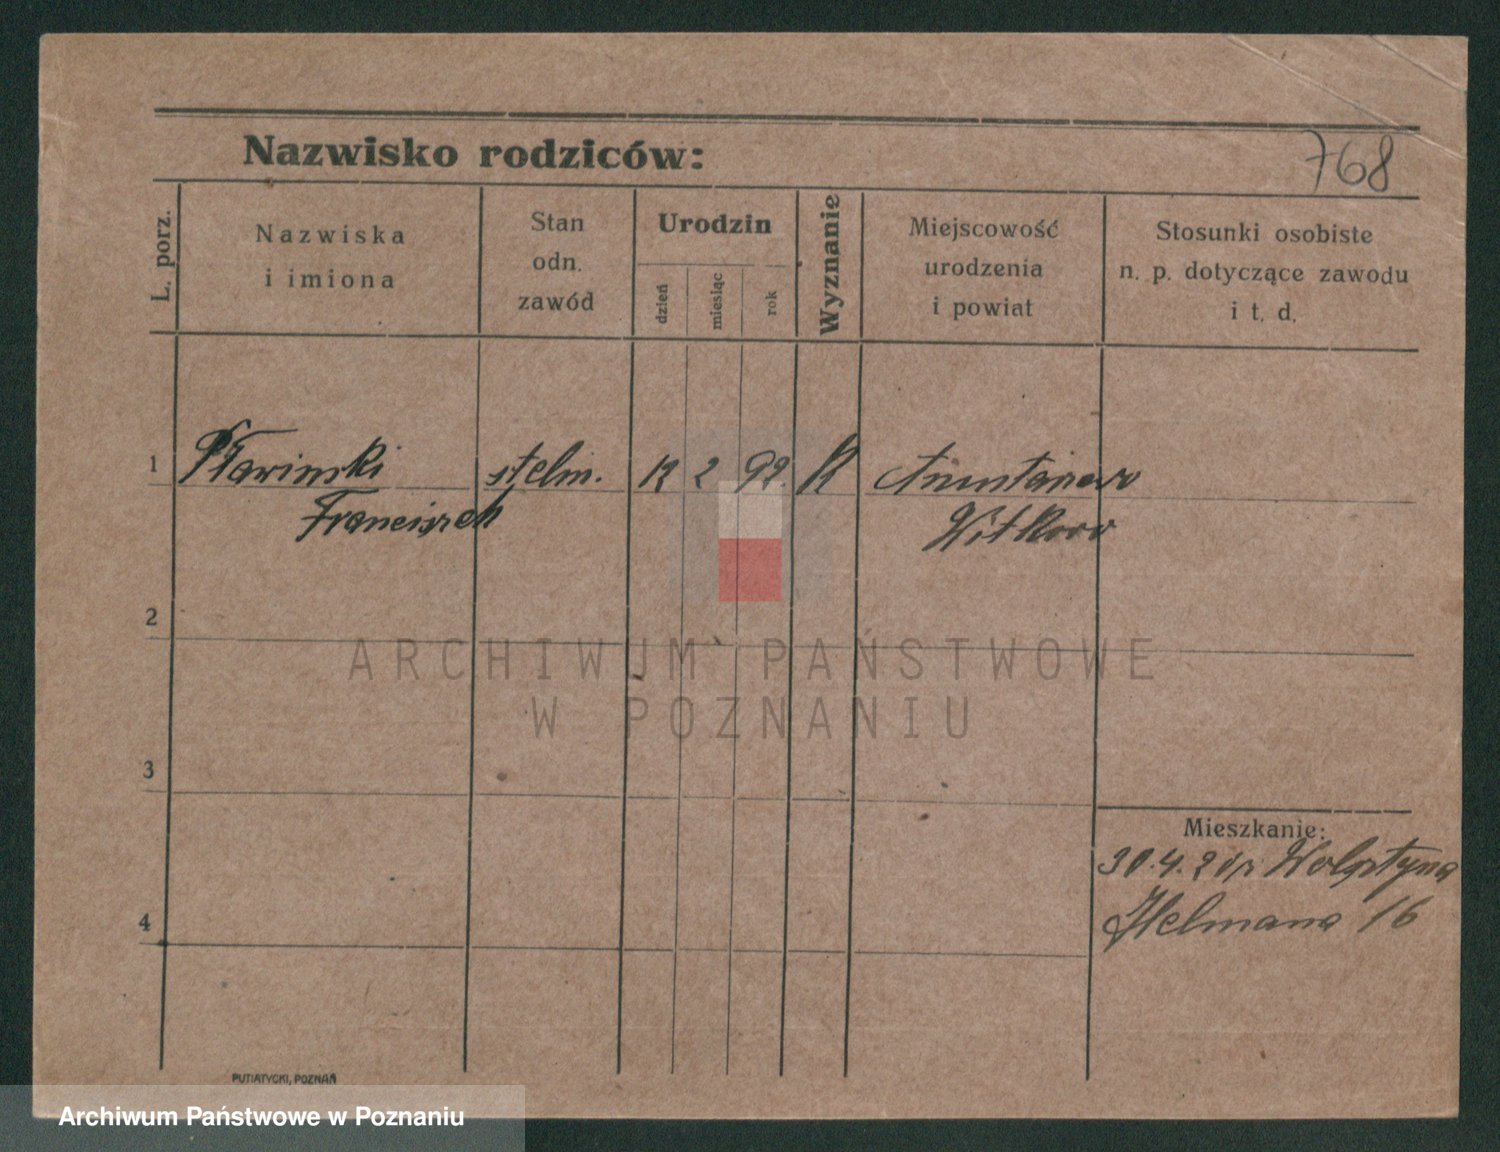 Nazwisko rodziców:
768
L. porz.
Nazwiska
i imiona
Stan
odn.
zawód
Urodzin
dzień
miesiąc
rok
Wyznanie
Miejscowość
urodzenia
i powiat
Stosunki osobiste
n. p. dotyczące zawodu
i t. d.
1
stelm.
12
2
92.
K
Franciszek
Witkowo
2
ARCHIWUM PAŃSTWOWE
W POZNANIU
3
Mieszkanie:
30.4.20 Wolsztyna
16
4
PUTIATYCKI, POZNAŃ
Archiwum Państwowe w Poznaniu